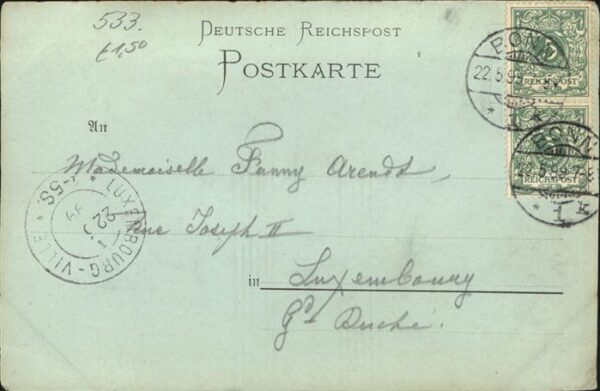 533.
£1,50
DEUTSCHE REICHSPOST
POSTKARTE
An
Mademoiselle Fanny Arendt,
rue Joseph II
in Luxembourg
Gd Duché.
5
REICHSPOST
5
REICHSPOST
BONN
22.5.99
* 1
BONN
7-8
* 1 k *
LUXEMBOURG-VILLE
22